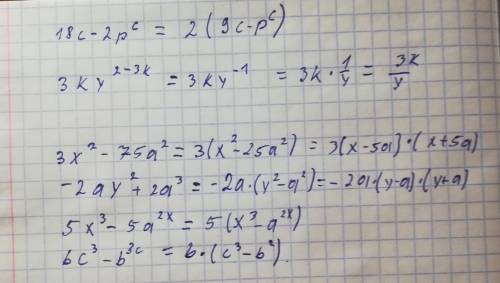 18c - 2p^c = 2(9c - p^c)
3ky^{2-3k} = 3ky^{-1} = 3k · 1/y = 3k/y
3x² - 75a² = 3(x² - 25a²) = 3(x - 5a) · (x + 5a)
-2ay² + 2a³ = -2a · (y² - a²) = -2a · (y - a) · (y + a)
5x³ - 5a^{2x} = 5(x³ - a^{2x})
6c³ - b^{3c} = b · (c³ - b²).